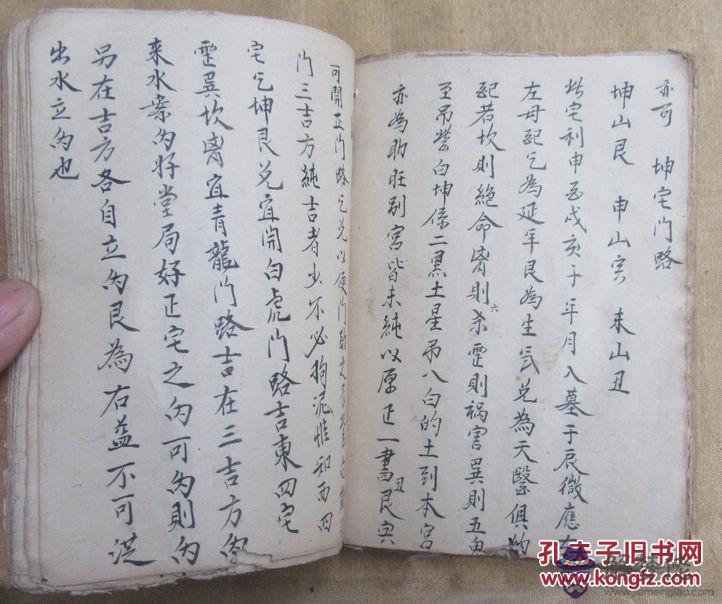 亦可 坤宅门路
坤山艮 申山寅 未山丑
此宅利申酉戌亥子年月入墓于辰微應在
左母配乞為延年艮為生氣兑為天醫俱的
配若坎則絶命离則六杀震則禍害巽則五鬼
至吊紫白坤係二黑土星吊八白的土到本宫
亦為助旺别宫皆未純以原正一書丑艮寅
可開正门路乞兑以便门
门三吉方純吉者少不必拘泥惟知西四
宅乞坤艮兑宜開白虎门路吉東四宅
震巽坎离宜青龍门路吉在三吉方内
来水案向好堂局好正宅之向可向則向
另在吉方各自立向艮為右益不可從
出水立向也
孔夫子旧书网
www.kongfz.com